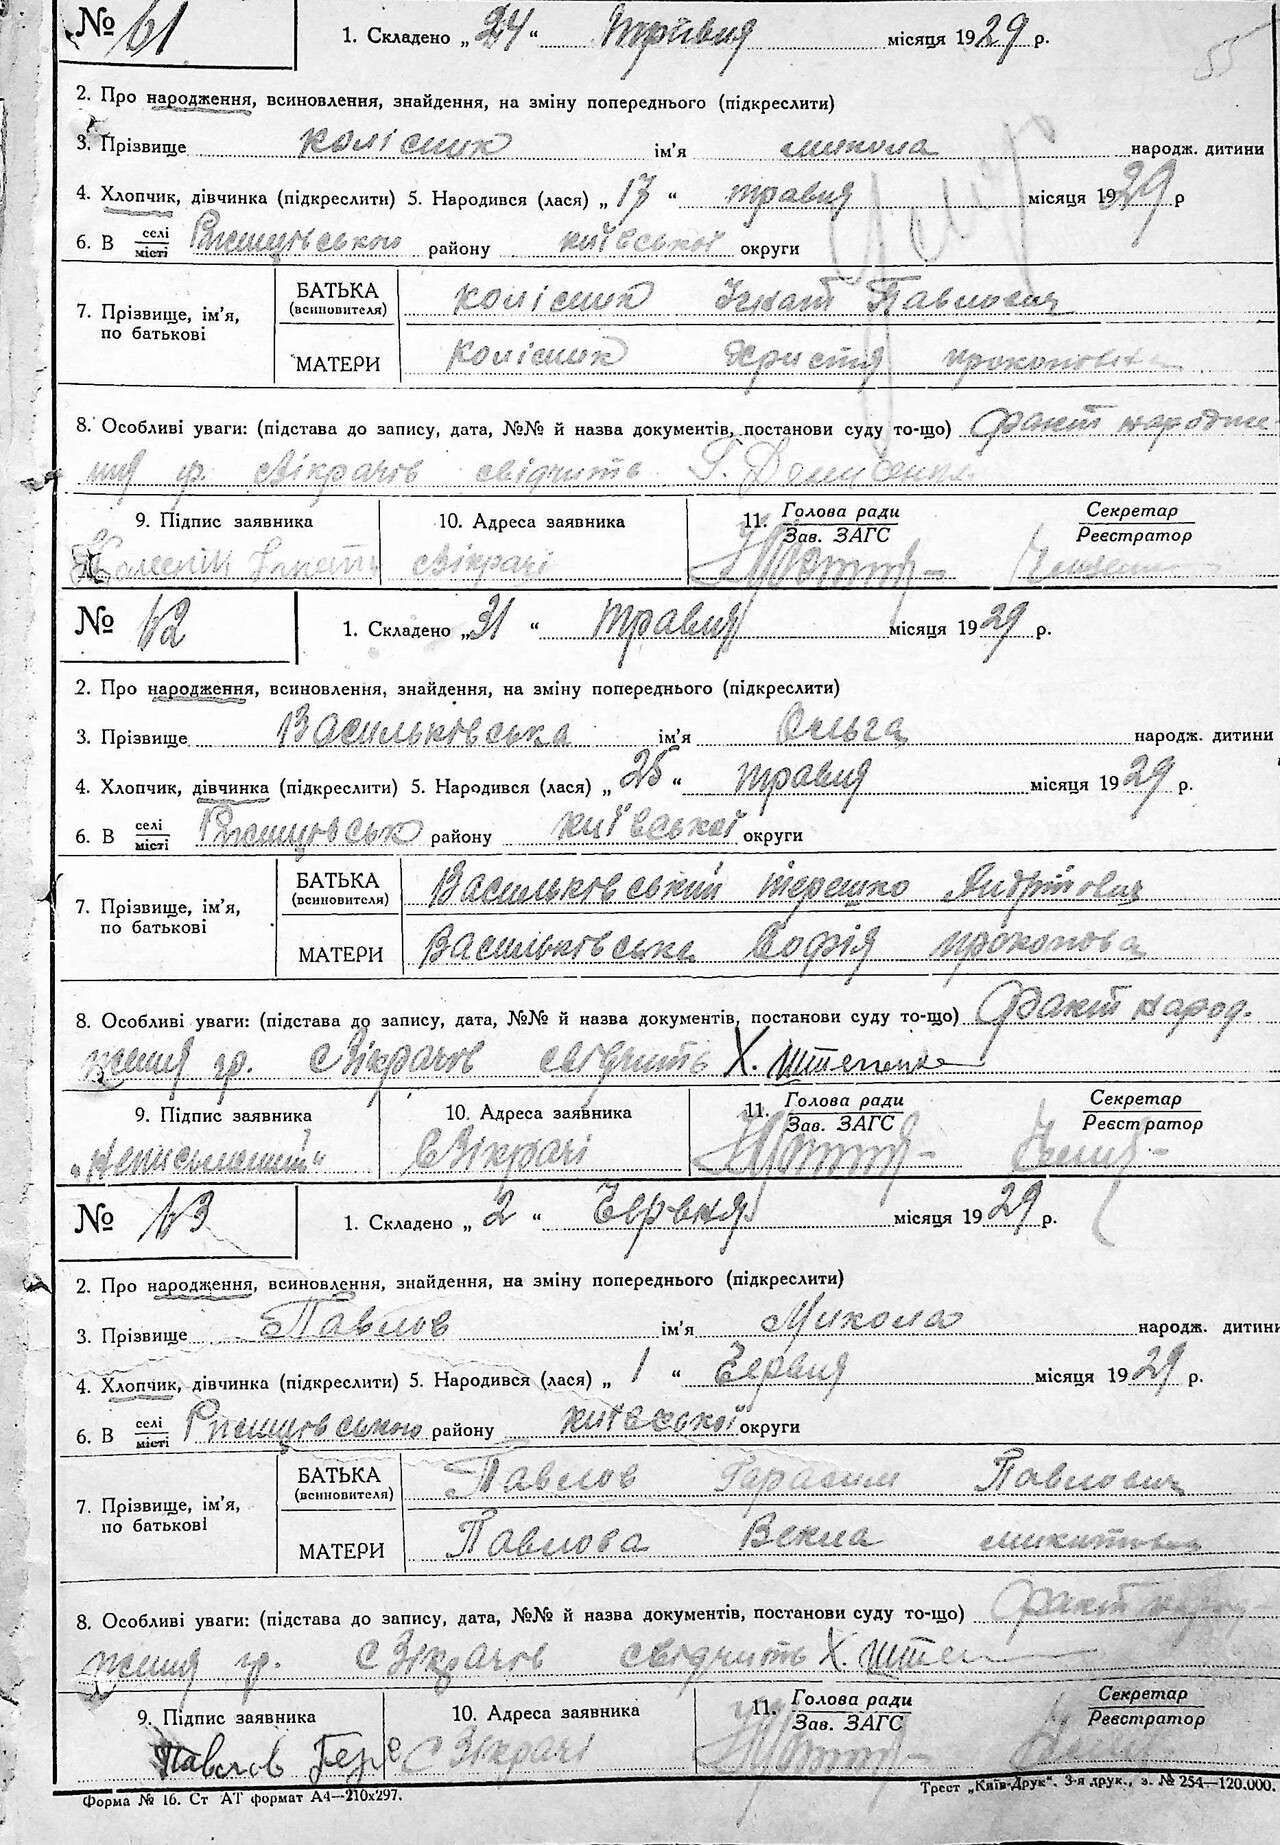 № 61
1. Складено „ 24 “ Травня місяця 1929 р.
55
2. Про народження, всиновлення, знайдення, на зміну попереднього (підкреслити)
3. Прізвище колісник ім'я микола народж. дитини
4. Хлопчик, дівчинка (підкреслити) 5. Народився (лася) „ 17 “ травня місяця 1929 р
6. В селі місті Ржищівського району київської округи
7. Прізвище, ім'я, по батькові
БАТЬКА (всиновителя) колісник Ігнат Павлович
МАТЕРИ колісник христя прокоповна
8. Особливі уваги: (підстава до запису, дата, №№ й назва документів, постанови суду то-що) Факт народже-
ння гр. свідчить Г.
9. Підпис заявника 10. Адреса заявника 11. Голова ради Зав. ЗАГС Секретар Реєстратор
№ 62
1. Складено „ 31 “ травня місяця 1929 р.
2. Про народження, всиновлення, знайдення, на зміну попереднього (підкреслити)
3. Прізвище Васильківська ім'я Ольга народж. дитини
4. Хлопчик, дівчинка (підкреслити) 5. Народився (лася) „ 25 “ травня місяця 1929 р.
6. В селі місті Ржищівськ району київської округи
7. Прізвище, ім'я, по батькові
БАТЬКА (всиновителя) Васильківський терешко Андрійович
МАТЕРИ Васильківська Софія прокопова
8. Особливі уваги: (підстава до запису, дата, №№ й назва документів, постанови суду то-що) Факт народ-
ження гр. свідчить Х.
9. Підпис заявника 10. Адреса заявника 11. Голова ради Зав. ЗАГС Секретар Реєстратор
„Неписьменний“ Зікрачі
№ 63
1. Складено „ 2 “ Червня місяця 1929 р.
2. Про народження, всиновлення, знайдення, на зміну попереднього (підкреслити)
3. Прізвище Павлов ім'я Микола народж. дитини
4. Хлопчик, дівчинка (підкреслити) 5. Народився (лася) „ 1 “ Червня місяця 1929 р.
6. В селі місті Ржищівського району київської округи
7. Прізвище, ім'я, по батькові
БАТЬКА (всиновителя) Павлов Герасим Павлович
МАТЕРИ Павлова Векла микитовна
8. Особливі уваги: (підстава до запису, дата, №№ й назва документів, постанови суду то-що) Факт народ-
ження гр. С Зікрачів свідчить Х.
9. Підпис заявника 10. Адреса заявника 11. Голова ради Зав. ЗАГС Секретар Реєстратор
Павлов С Зікрачі
Форма № 16. Ст АТ формат А4—210х297. Трест „Київ-Друк“. 3-я друк., з. № 254—120.000.